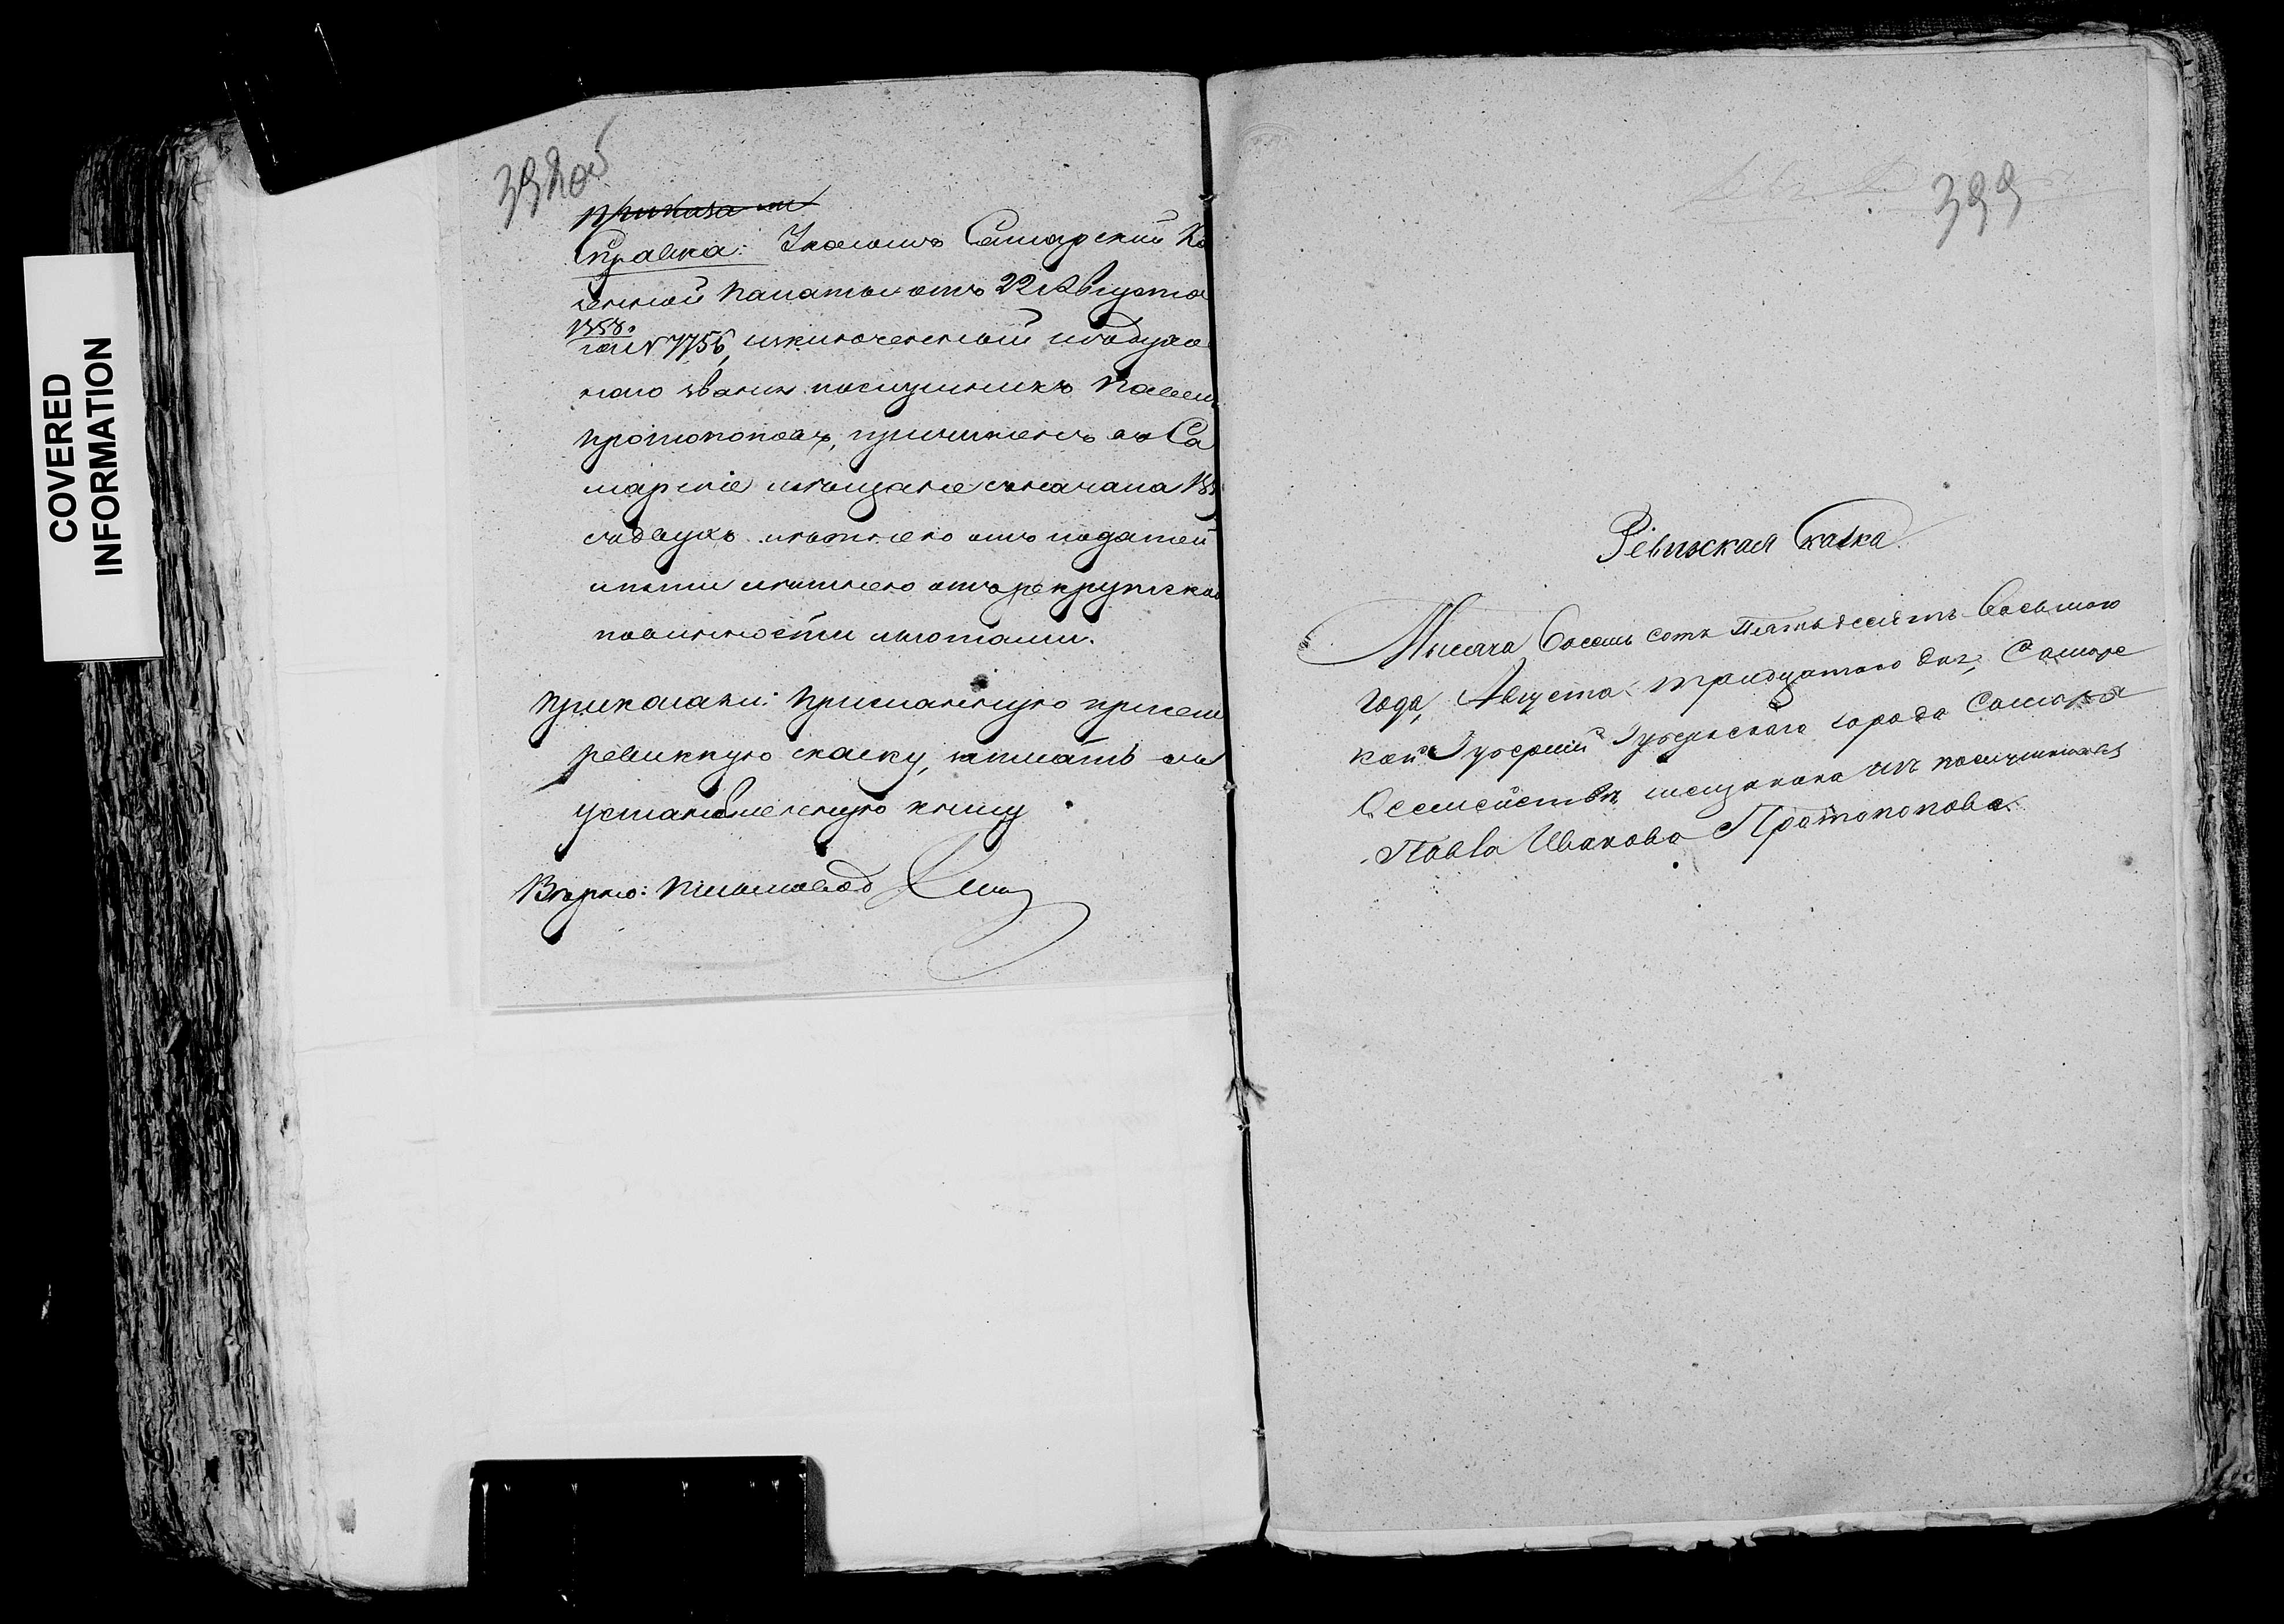 COVERED
INFORMATION
398об
приказали
Справка: Указомъ Самарской Ка
зенной Палаты отъ 22 Августа
1858.
за № 7756, исключенный изъ духо
наго званія послушникъ Павелъ
Протопоповъ, причисленъ въ Са
марскіе мѣщане съ начала 185
съ двухъ лѣтнею отъ податей
и лѣтнею отъ рекрутской
повинности льготами.
Приказали: Присланную при семъ
ревизкую скаску, записать въ
установленную книгу
Вѣрно: Письмовод
399
Ревизская Скаска
Тысяча Восемь сотъ Пятьдесятъ Восьмаго
Года, Августа тридцатаго дня, Самарс
кой Губерніи Губернскаго города Самары
О семействѣ мещанина изъ послушниковъ
Павла Иванова Протопопова.